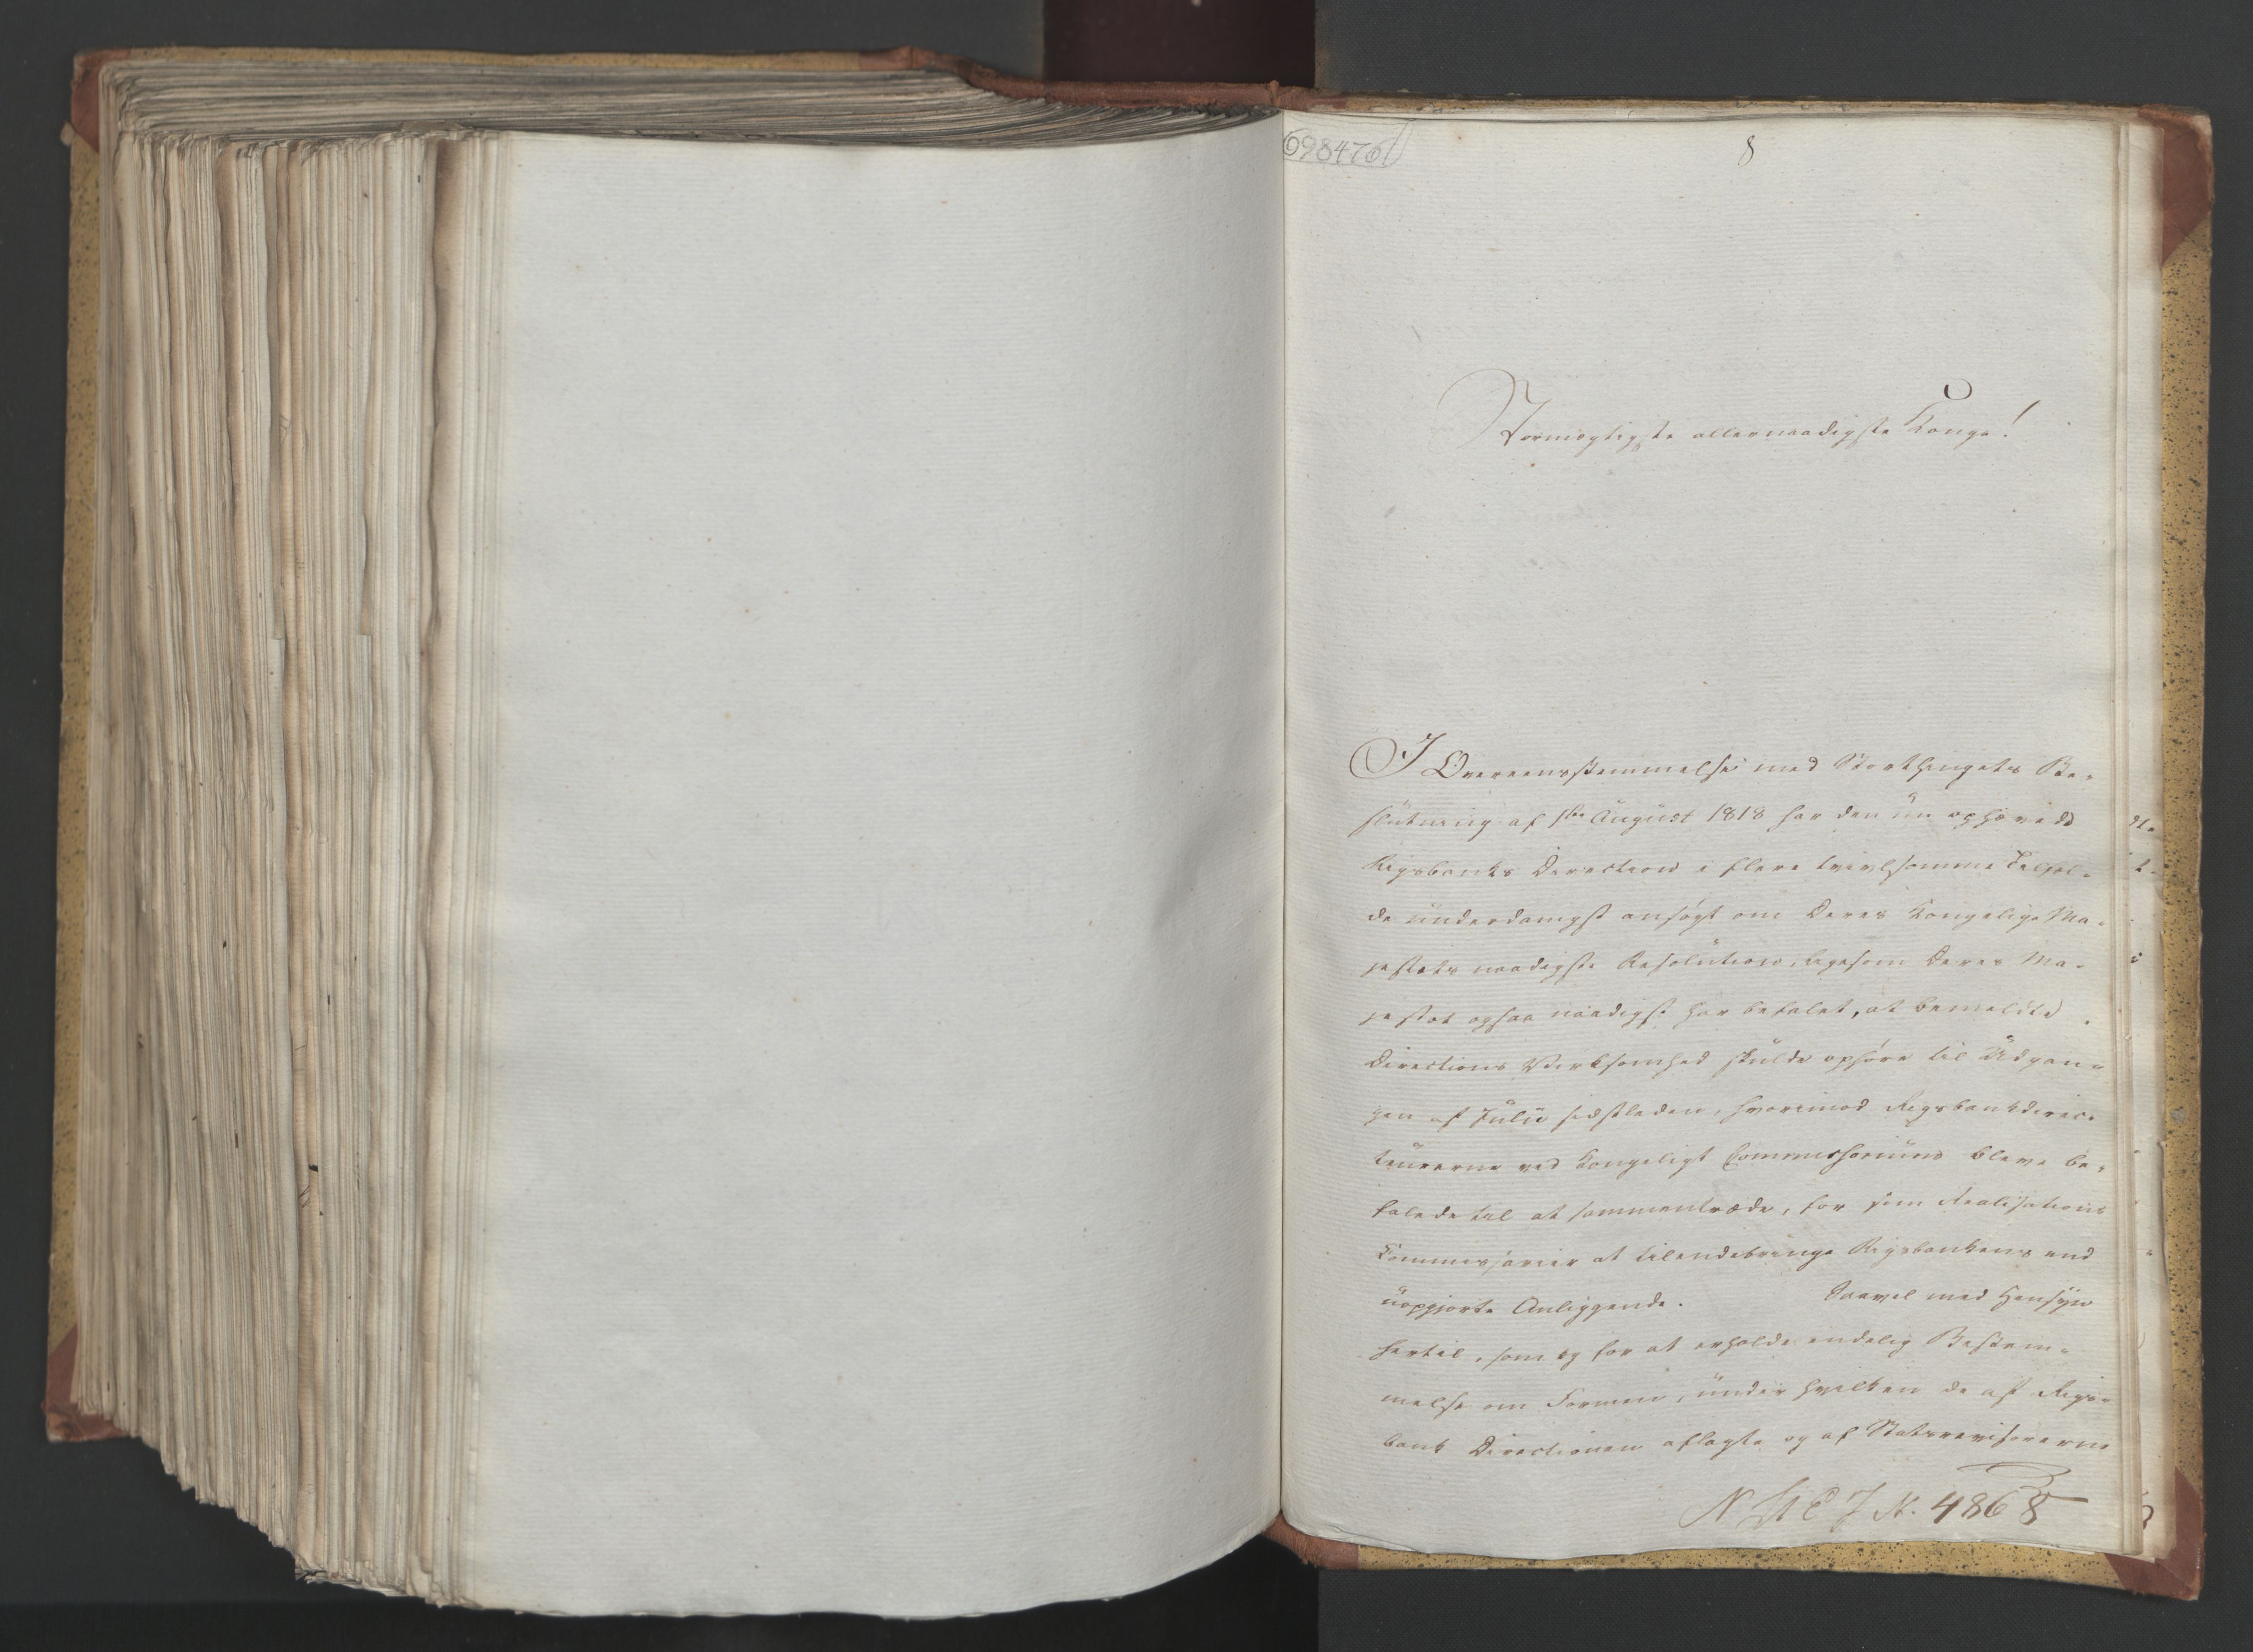 698476
8
Stormægtigste allernaadigste Konge!
I Overeensstemmelse med Storthingets Be-
slutning af 1ste August 1818 har den nu ophævede
Rigsbanks Direction i flere tvivlsomme Tilfæl-
de underdanigst ansøgt om Deres Kongelige Ma-
jestæts naadigste Resolution, ligesom Deres Ma-
jestæt ogsaa naadigst har befalet, at bemeldte
Directions Virksomhed skulde ophøre til Udgan-
gen af Julii sidstleden, hvorimod Rigsbankdirec-
teurerne ved Kongeligt Commissorium bleve be-
falede til at sammentræde, for som Realisations
Commissarier at tilendebringe Rigsbankens end
uopgjorte Anliggende. Saavel med Hensyn
hertil, som og for at erholde endelig Bestem-
melse om Formen, under hvilken de af Rigs-
bank Directionen aflagte og af Statsrevisorerne
4868